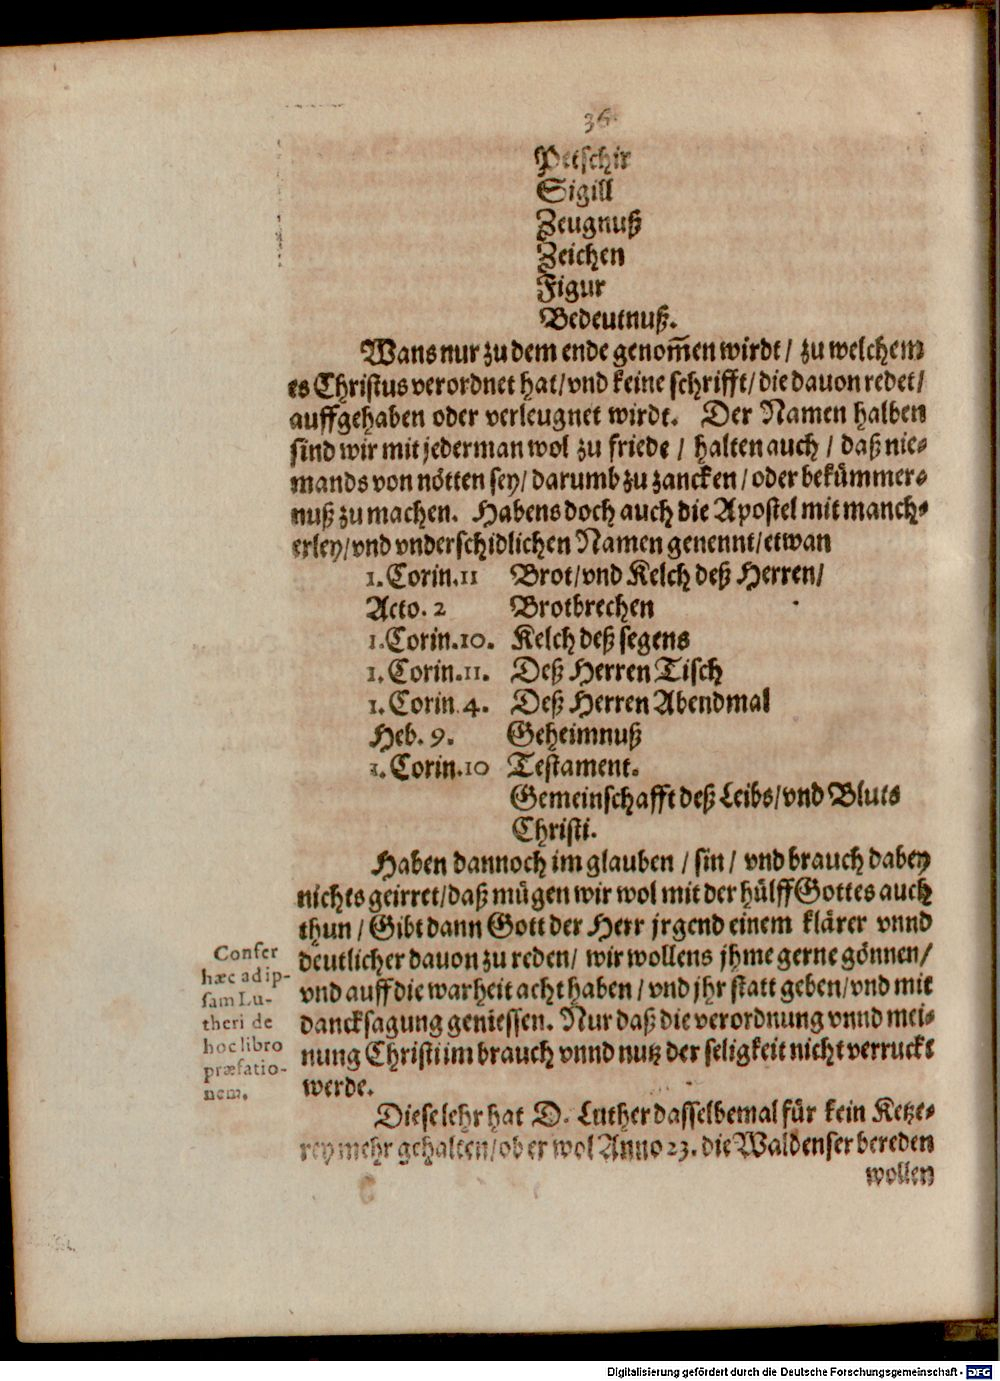 36
Petschir
Sigill
Zeugnuß
Zeichen
Figur
Bedeutnuß.
Wans nur zu dem ende genom̃en wirdt / zu welchem
es Christus verordnet hat / vnd keine schrifft / die dauon redet /
auffgehaben oder verleugnet wirdt. Der Namen halben
sind wir mit jederman wol zu friede / halten auch / daß nie-
mands von nötten sey / darumb zu zancken / oder bekümmer-
nuß zu machen. Habens doch auch die Apostel mit manch-
erley / vnd vnderschidlichen Namen genennt / etwan
1. Corin. 11 Brot / vnd Kelch deß Herren /
Acto. 2 Brotbrechen
1. Corin. 10. Kelch deß segens
1. Corin. 11. Deß Herren Tisch
1. Corin. 4. Deß Herren Abendmal
Heb. 9. Geheimnuß
1. Corin. 10 Testament.
Gemeinschafft deß Leibs / vnd Bluts
Christi.
Haben dannoch im glauben / sin / vnd brauch dabey
nichts geirret / daß mügen wir wol mit der hülff Gottes auch
thun / Gibt dann Gott der Herr jrgend einem klärer vnnd
deutlicher dauon zu reden / wir wollens jhme gerne gönnen /
vnd auff die warheit acht haben / vnd jhr statt geben / vnd mit
dancksagung geniessen. Nur daß die verordnung vnnd mei-
nung Christi im brauch vnnd nutz der seligkeit nicht verruckt
werde.
Confer
hæc ad ip-
sam Lu-
theri de
hoc libro
præfatio-
nem.
Diese lehr hat D. Luther dasselbemal für kein Ketze-
rey mehr gehalten / ob er wol Anno 23. die Waldenser bereden
wollen
Digitalisierung gefördert durch die Deutsche Forschungsgemeinschaft - DFG